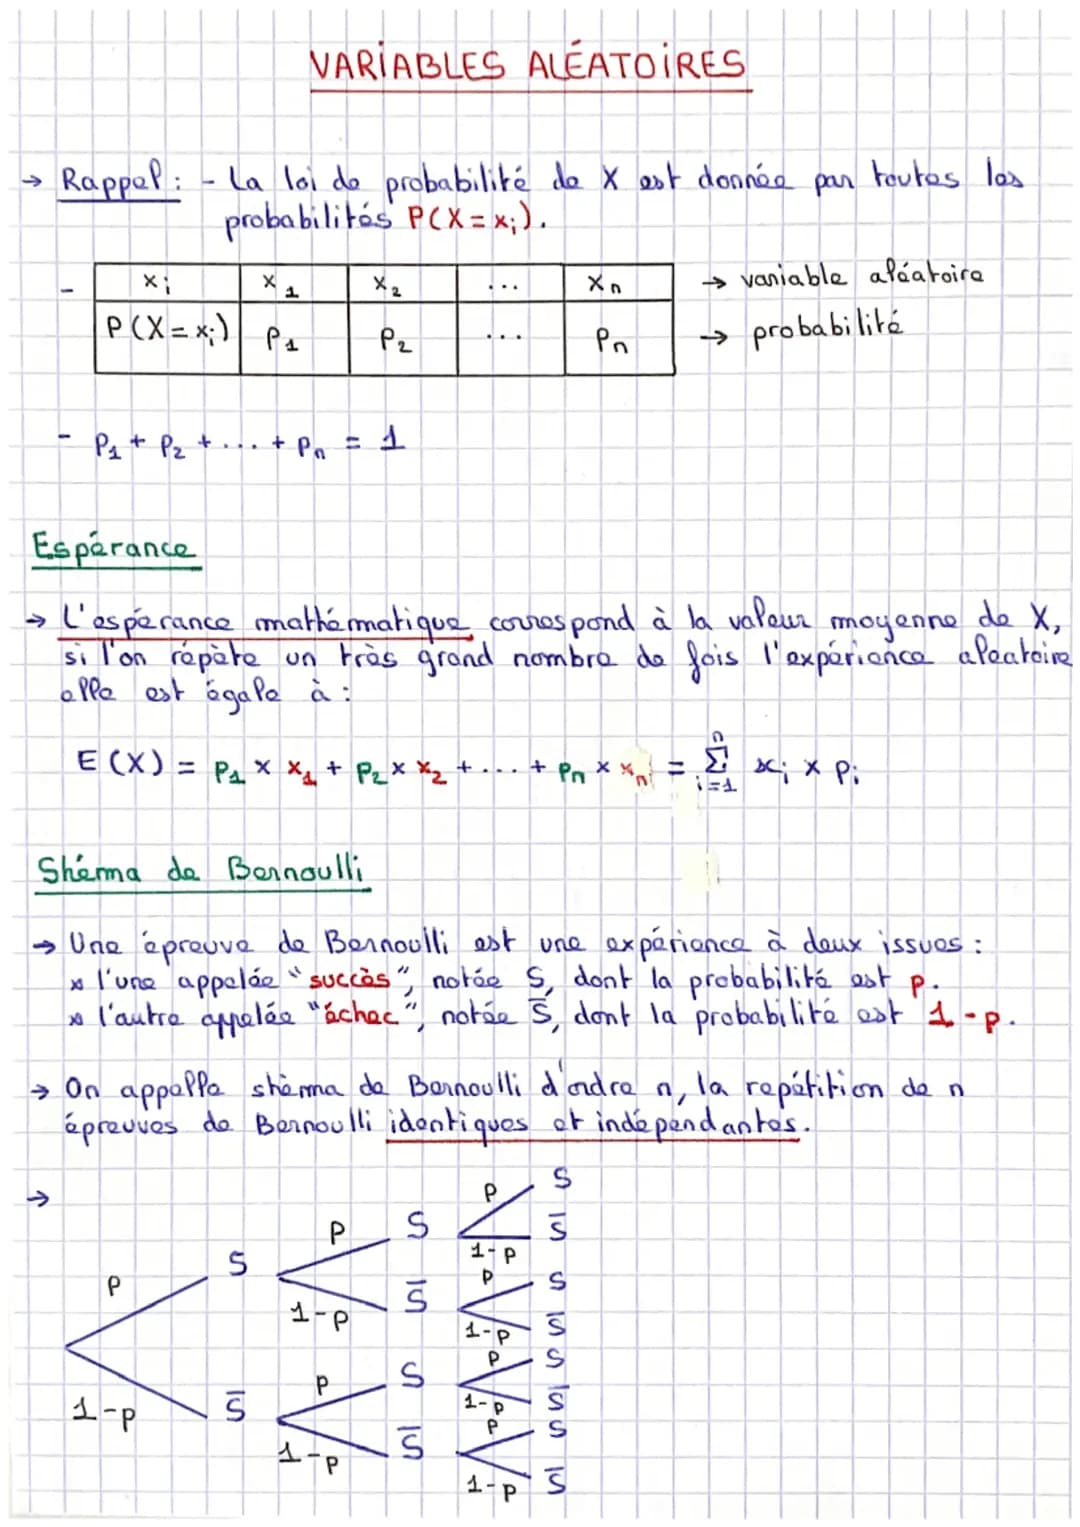 VARIABLES ALÉATOIRES
→ Rappel : - La loi de probabilité de X est donnée par toutes les
probabilités P(X = xi).
- xi x1 x2 ... xn → variable aléatoire
P(X = xi) P1 P2 ... Pn → probabilité
- P1 + P2 + ... + Pn = 1
Espérance
→ L'espérance mathématique correspond à la valeur moyenne de X,
si l'on répète un très grand nombre de fois l'expérience aleatoire
elle est égale à :
E(X) = P1 × x1 + P2 × x2 + ... + Pn × xn = n∑i=1 xi × Pi
Shéma de Bernoulli
→ Une épreuve de Bernoulli est une expérience à deux issues :
* l'une appelée "succès", notée S, dont la probabilité est p.
* l'autre appelée "échec", notée S̅, dont la probabilité est 1-p.
→ On appelle shéma de Bernoulli d'ordre n, la repétition de n
épreuves de Bernoulli identiques et indépendantes.
→
p S
p S 1-p S̅
p S
1-p S̅ p S
1-p S̅
p S
p S 1-p S̅
1-p S̅
1-p S̅ p S
1-p S̅